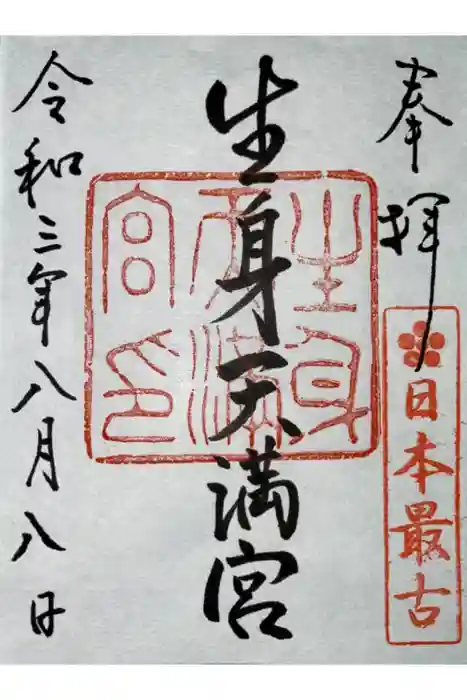 奉拝
日本最古
生身天満宮
生身天満宮印
令和三年八月八日